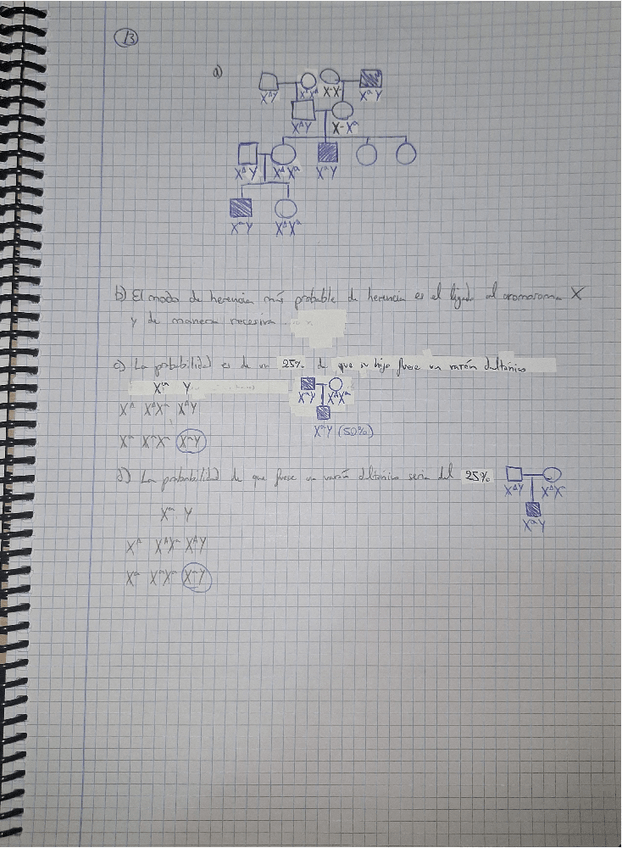 13
a)
XᴬY XᴬXᴬ X-X- XᵃY
XᴬY X-Xᵃ
XᴬY XᴬXᵃ XᵃY
XᵃY XᴬXᵃ
b) El modo de herencia más probable de herencia es el ligado al cromosoma X
y de manera recesiva
c) La probabilidad es de un 25% de que su hijo fuese un varón daltónico
Xᵃ Y
XᵃY XᴬXᵃ
Xᴬ XᴬXᵃ XᴬY
XᵃY (50%)
Xᵃ XᵃXᵃ XᵃY
d) La probabilidad de que fuese un varón daltónico sería del 25%
XᴬY XᴬXᵃ
Xᵃ Y
XᵃY
Xᴬ XᴬXᵃ XᴬY
Xᵃ XᵃXᵃ XᵃY